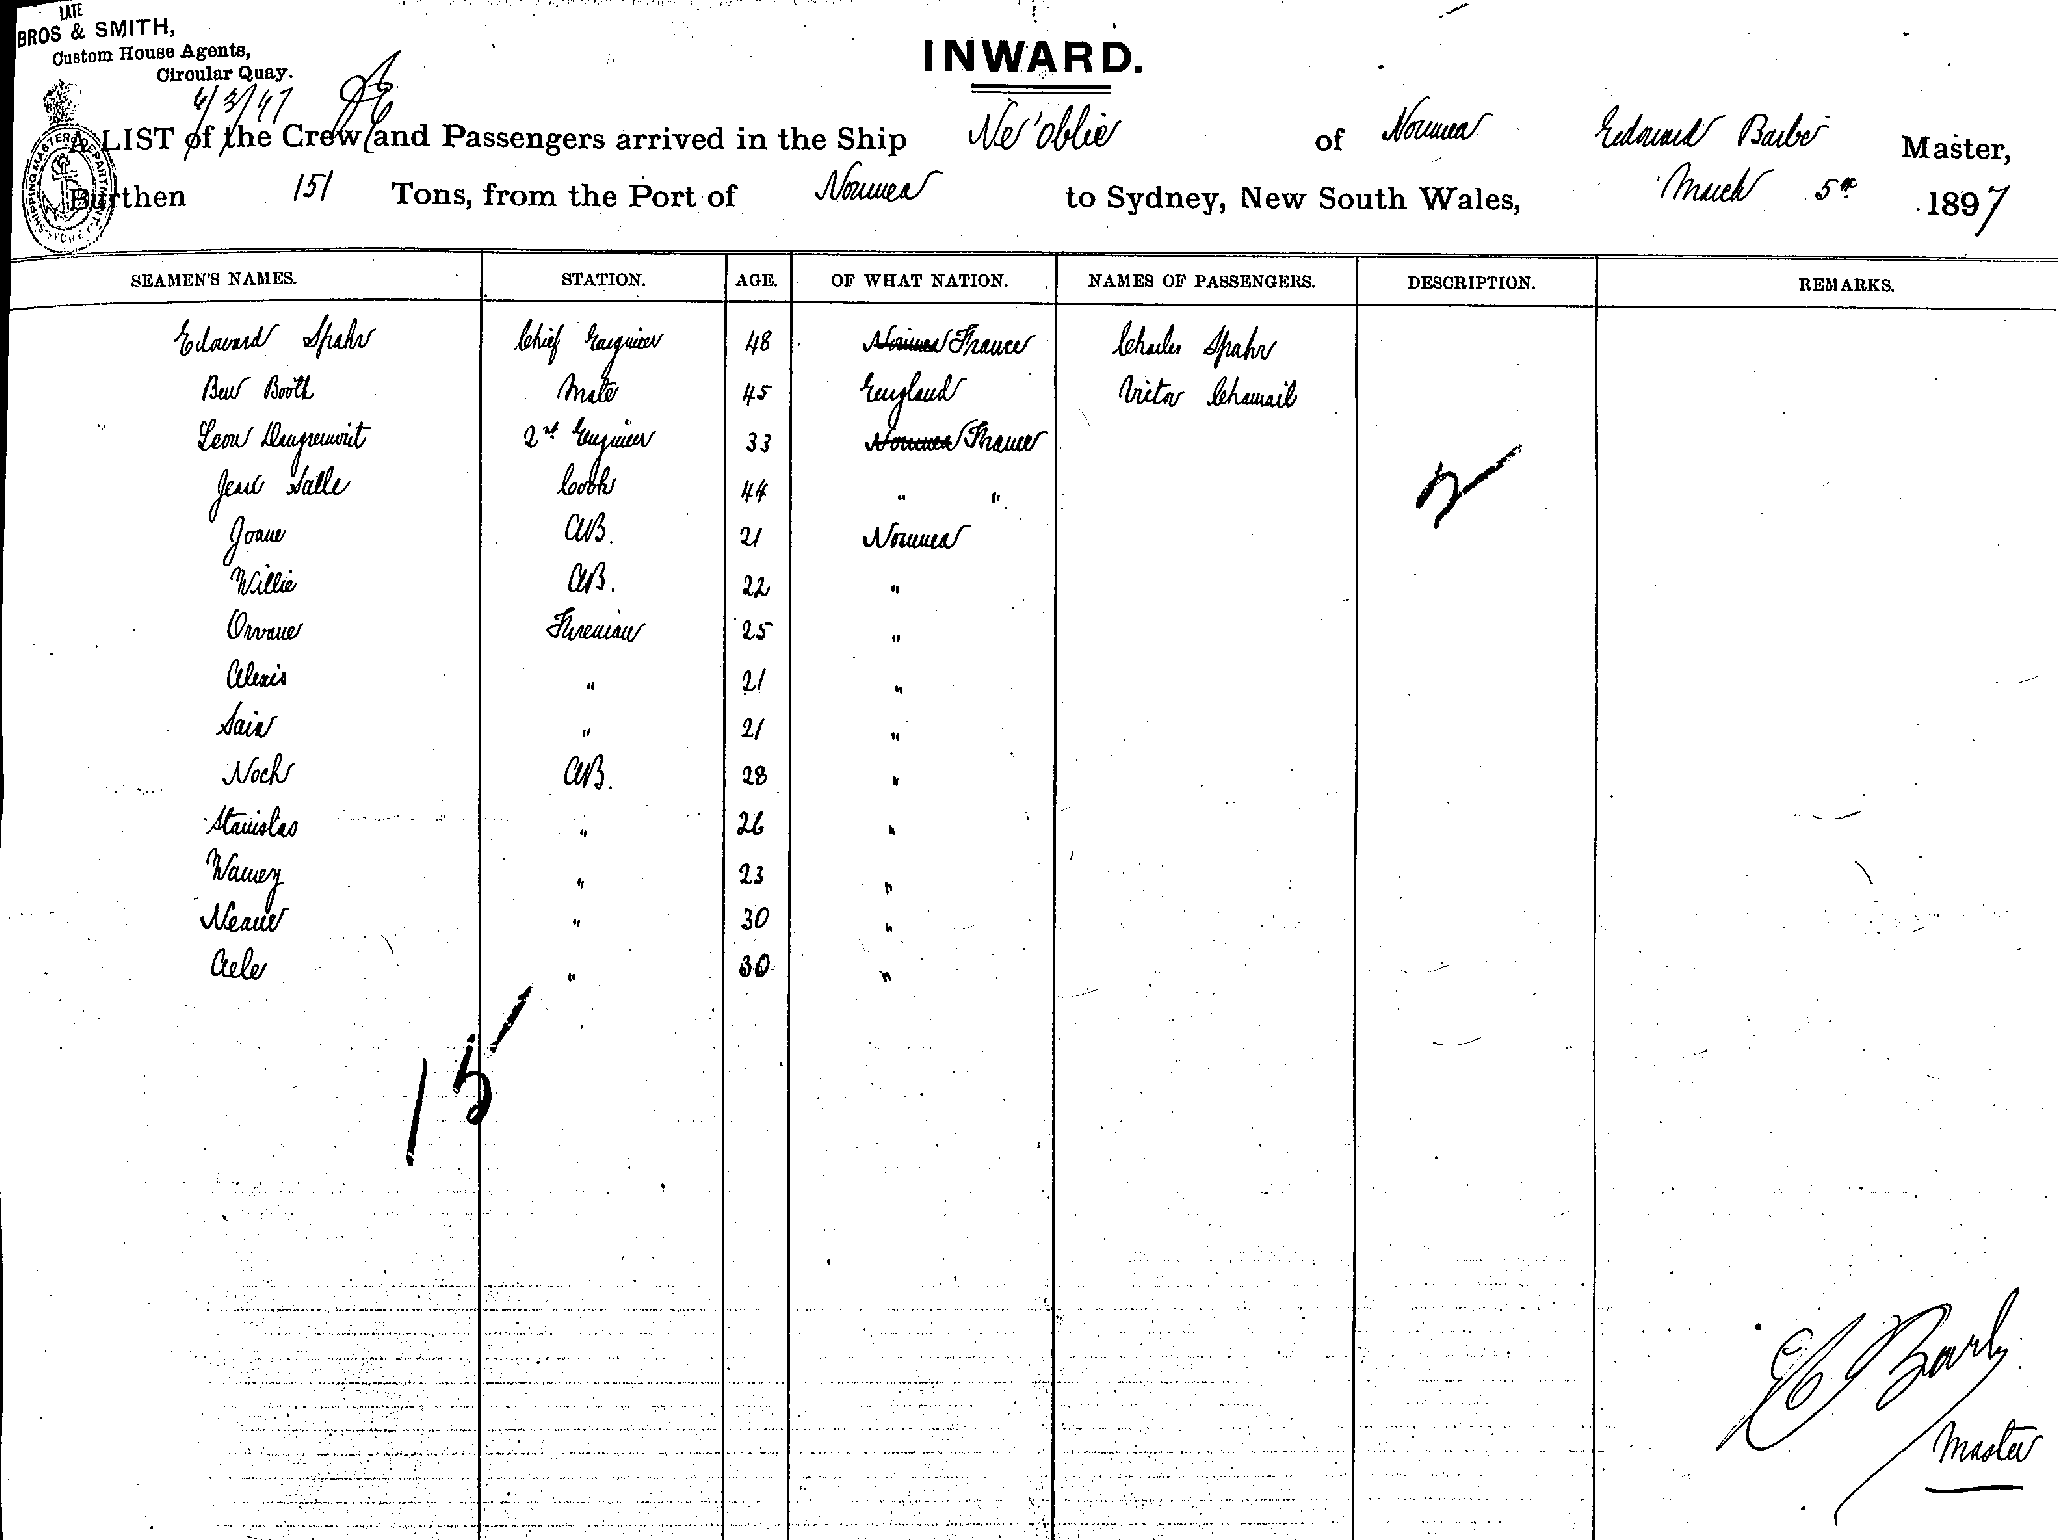 LATE
BROS & SMITH,
Custom House Agents,
Circular Quay.
6/3/97
INWARD.
A LIST of the Crew and Passengers arrived in the Ship Ne'oblie of Noumea Edouard Barbé Master,
Burthen 151 Tons, from the Port of Noumea to Sydney, New South Wales, March 5th 1897
SEAMEN'S NAMES. STATION. AGE. OF WHAT NATION. NAMES OF PASSENGERS. DESCRIPTION. REMARKS.
Edouard Spahr Chief Engineer 48 Noumea France Charles Spahr
Ben Booth Mate 45 England Victor Chamail
Leon 2nd Engineer 33 Noumea France
Jean Salle Cook 44 " "
Joane AB. 21 Noumea
Willie AB. 22 "
Orvane Fireman 25 "
Alexis " 21 "
Sain " 21 "
Noch AB. 28 "
Stanislas " 26 "
Wamey " 23 "
Neaue " 30 "
Aele " 30 "
2
15
Master